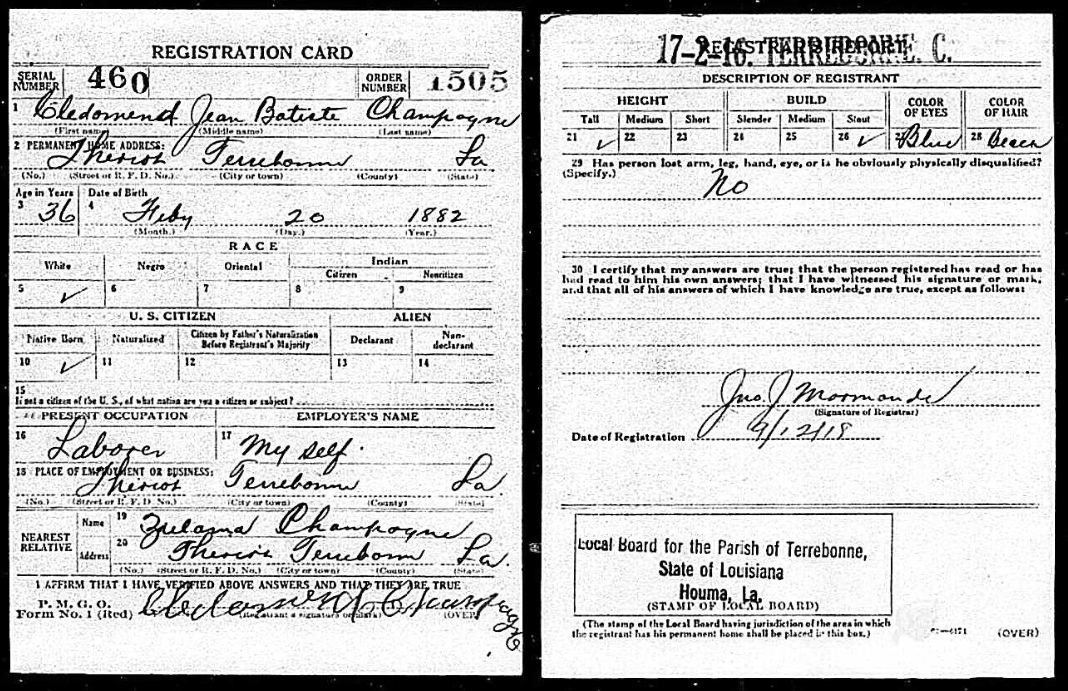 REGISTRATION CARD
SERIAL NUMBER 460 ORDER NUMBER 1505
1 Cledomend Jean Batiste Champagne
(First name) (Middle name) (Last name)
2 PERMANENT HOME ADDRESS:
Theriot Terrebonne La
(No.) (Street or R. F. D. No.) (City or town) (County) (State)
Age in Years Date of Birth
3 36 4 Feby 20 1882
(Month.) (Day.) (Year.)
RACE
White Negro Oriental Indian
Citizen Noncitizen
5 ✓ 6 7 8 9
U. S. CITIZEN ALIEN
Native Born Naturalized Citizen by Father's Naturalization Before Registrant's Majority Declarant Non-declarant
10 ✓ 11 12 13 14
15
If not a citizen of the U. S., of what nation are you a citizen or subject?
PRESENT OCCUPATION EMPLOYER'S NAME
16 Laborer 17 My self.
18 PLACE OF EMPLOYMENT OR BUSINESS:
Theriot Terrebonne La.
(No.) (Street or R. F. D. No.) (City or town) (County) (State)
NEAREST RELATIVE Name 19 Zulama Champagne
Address 20 Theriot Terrebonn La.
(No.) (Street or R. F. D. No.) (City or town) (County) (State)
I AFFIRM THAT I HAVE VERIFIED ABOVE ANSWERS AND THAT THEY ARE TRUE
P. M. G. O.
Form No. 1 (Red) Cledomend Champagne
(Registrant's signature or mark) (OVER)
REGISTRAR'S REPORT
17-2-16. TERREBONNE. C.
DESCRIPTION OF REGISTRANT
HEIGHT BUILD COLOR OF EYES COLOR OF HAIR
Tall Medium Short Slender Medium Stout
21 ✓ 22 23 24 25 26 ✓ 27 Blue 28
29 Has person lost arm, leg, hand, eye, or is he obviously physically disqualified?
(Specify.) No
30 I certify that my answers are true; that the person registered has read or has
had read to him his own answers; that I have witnessed his signature or mark,
and that all of his answers of which I have knowledge are true, except as follows:
Jno. J Mormande
(Signature of Registrar)
Date of Registration 9/12/18
Local Board for the Parish of Terrebonne,
State of Louisiana
Houma, La.
(STAMP OF LOCAL BOARD)
(The stamp of the Local Board having jurisdiction of the area in which
the registrant has his permanent home shall be placed in this box.)
(OVER)